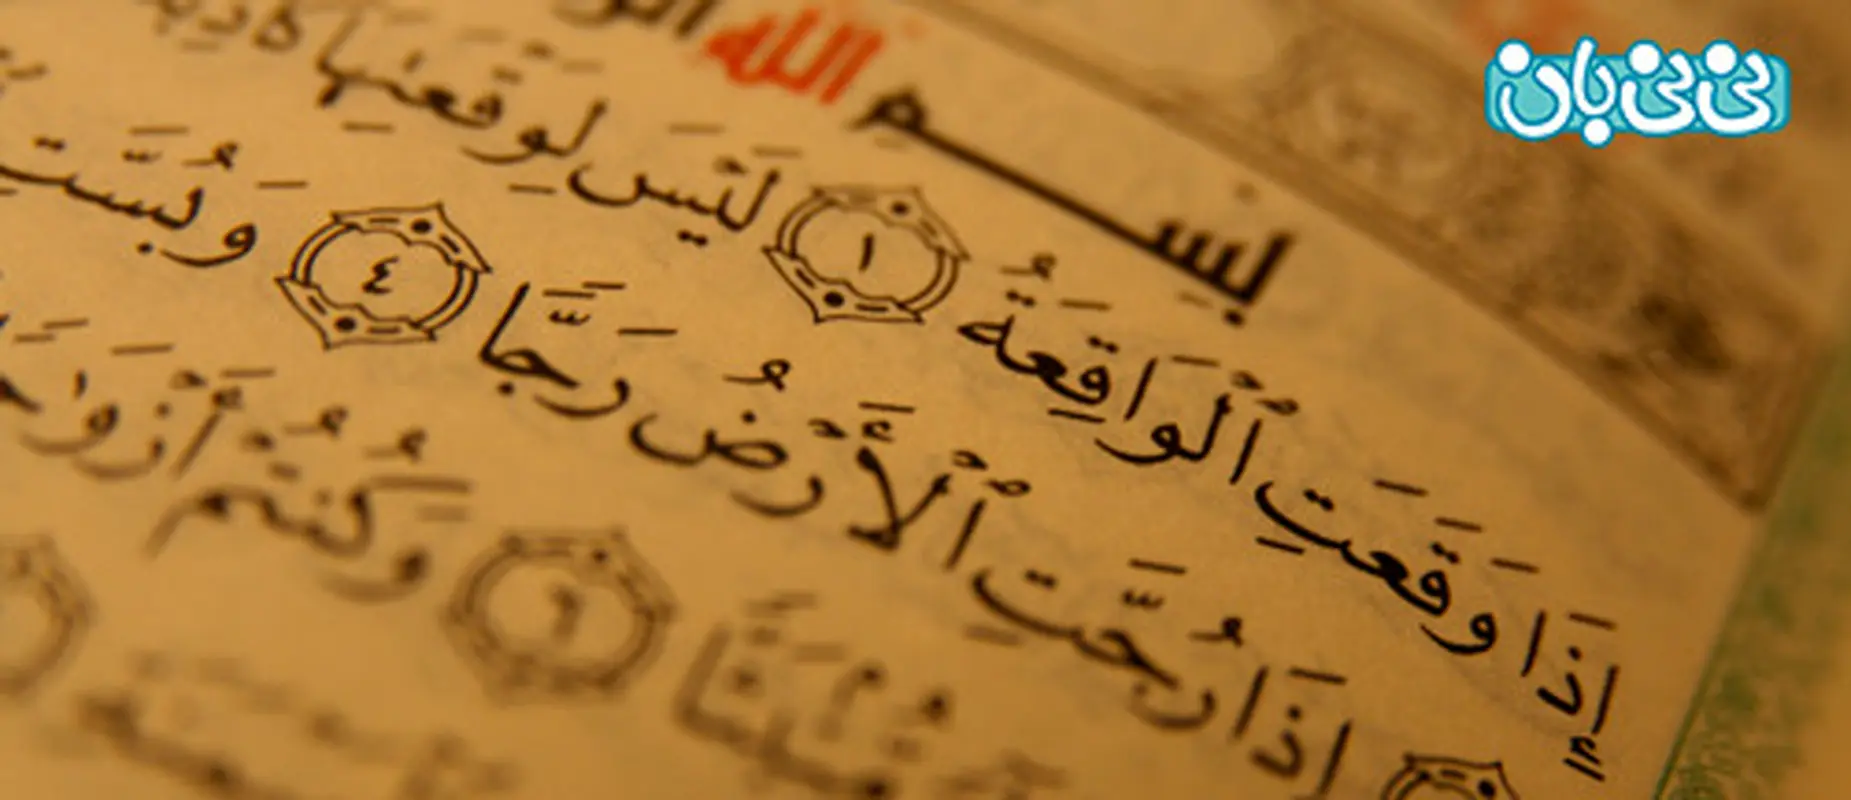 نی نی بان
بسم الله
إِذَا وَقَعَتِ ٱلْوَاقِعَةُ ١ لَيْسَ لِوَقْعَتِهَا
إِذَا رُجَّتِ ٱلْأَرْضُ رَجًّا ٤ وَبُسَّتِ
مُّنۢبَثًّا ٦ وَكُنتُمْ أَزْوَٰجًا